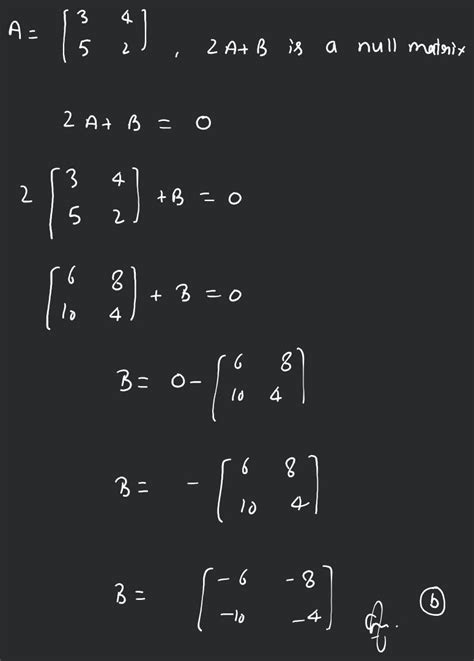 A = [ 3 4
5 2 ] , 2A+B is a null matrix
2A+B = 0
2 [ 3 4
5 2 ] + B = 0
[ 6 8
10 4 ] + B = 0
B = 0 - [ 6 8
10 4 ]
B = - [ 6 8
10 4 ]
B = [ -6 -8
-10 -4 ] (b)